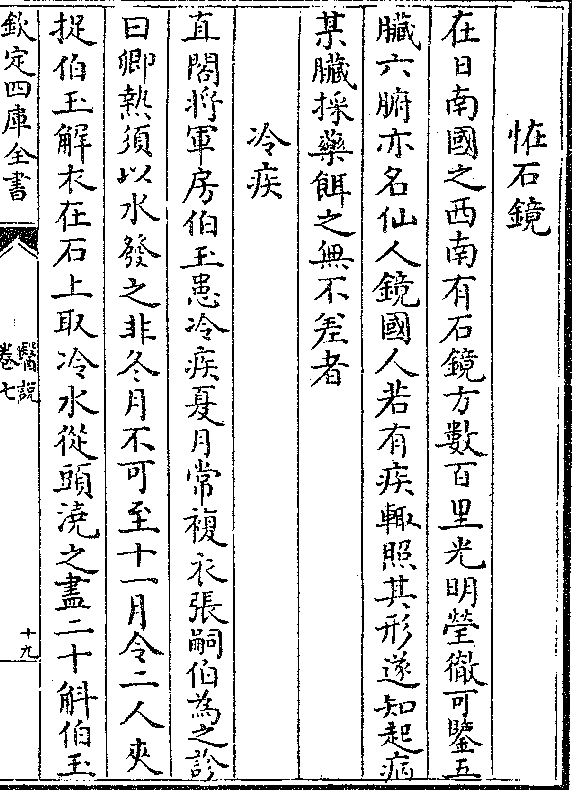 恠石鏡
在日南國之西南有石鏡方數百里光明瑩徹可鑒五
臟六腑亦名仙人鏡國人若有疾輙照其形遂知起病
某臟採藥餌之無不差者
冷疾
直閤將軍房伯玉患冷疾夏月常複衣張嗣伯為之診
曰卿熱須以水發之非冬月不可至十一月令二人夾
捉伯玉解衣在石上取冷水從頭澆之盡二十斛伯玉
欽定四庫全書
醫說
卷七
十九